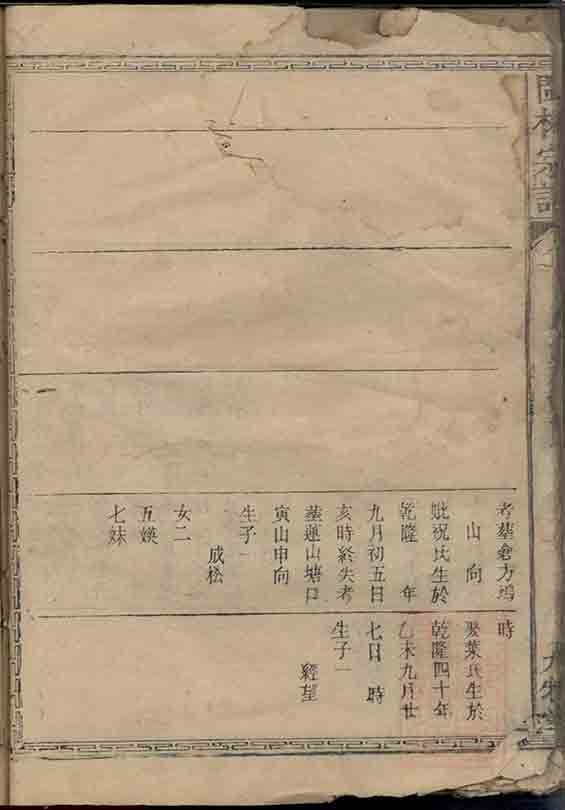 林宗譜
考墓倉方塢
山 向
妣祝氏生於
乾隆 年
九月初五日
亥時終失考
墓蓮山塘口
寅山申向
生子一
成松
女二
五媖
七妹
時
娶葉氏生於
乾隆四十年
乙未九月廿
七日 時
生子一
經望